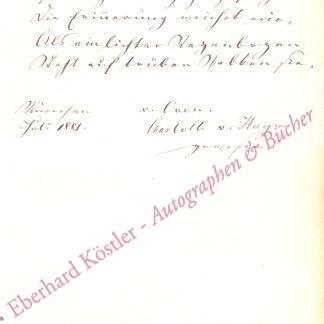 Die Erinnerung weichet nie,
Als ein lichter Regenbogen
Steht auf trüben Wolken sie.
München v. Oven.
Juli 1881. Charlotte v. Hagn
Eberhard Köstler - Autographen & Bücher